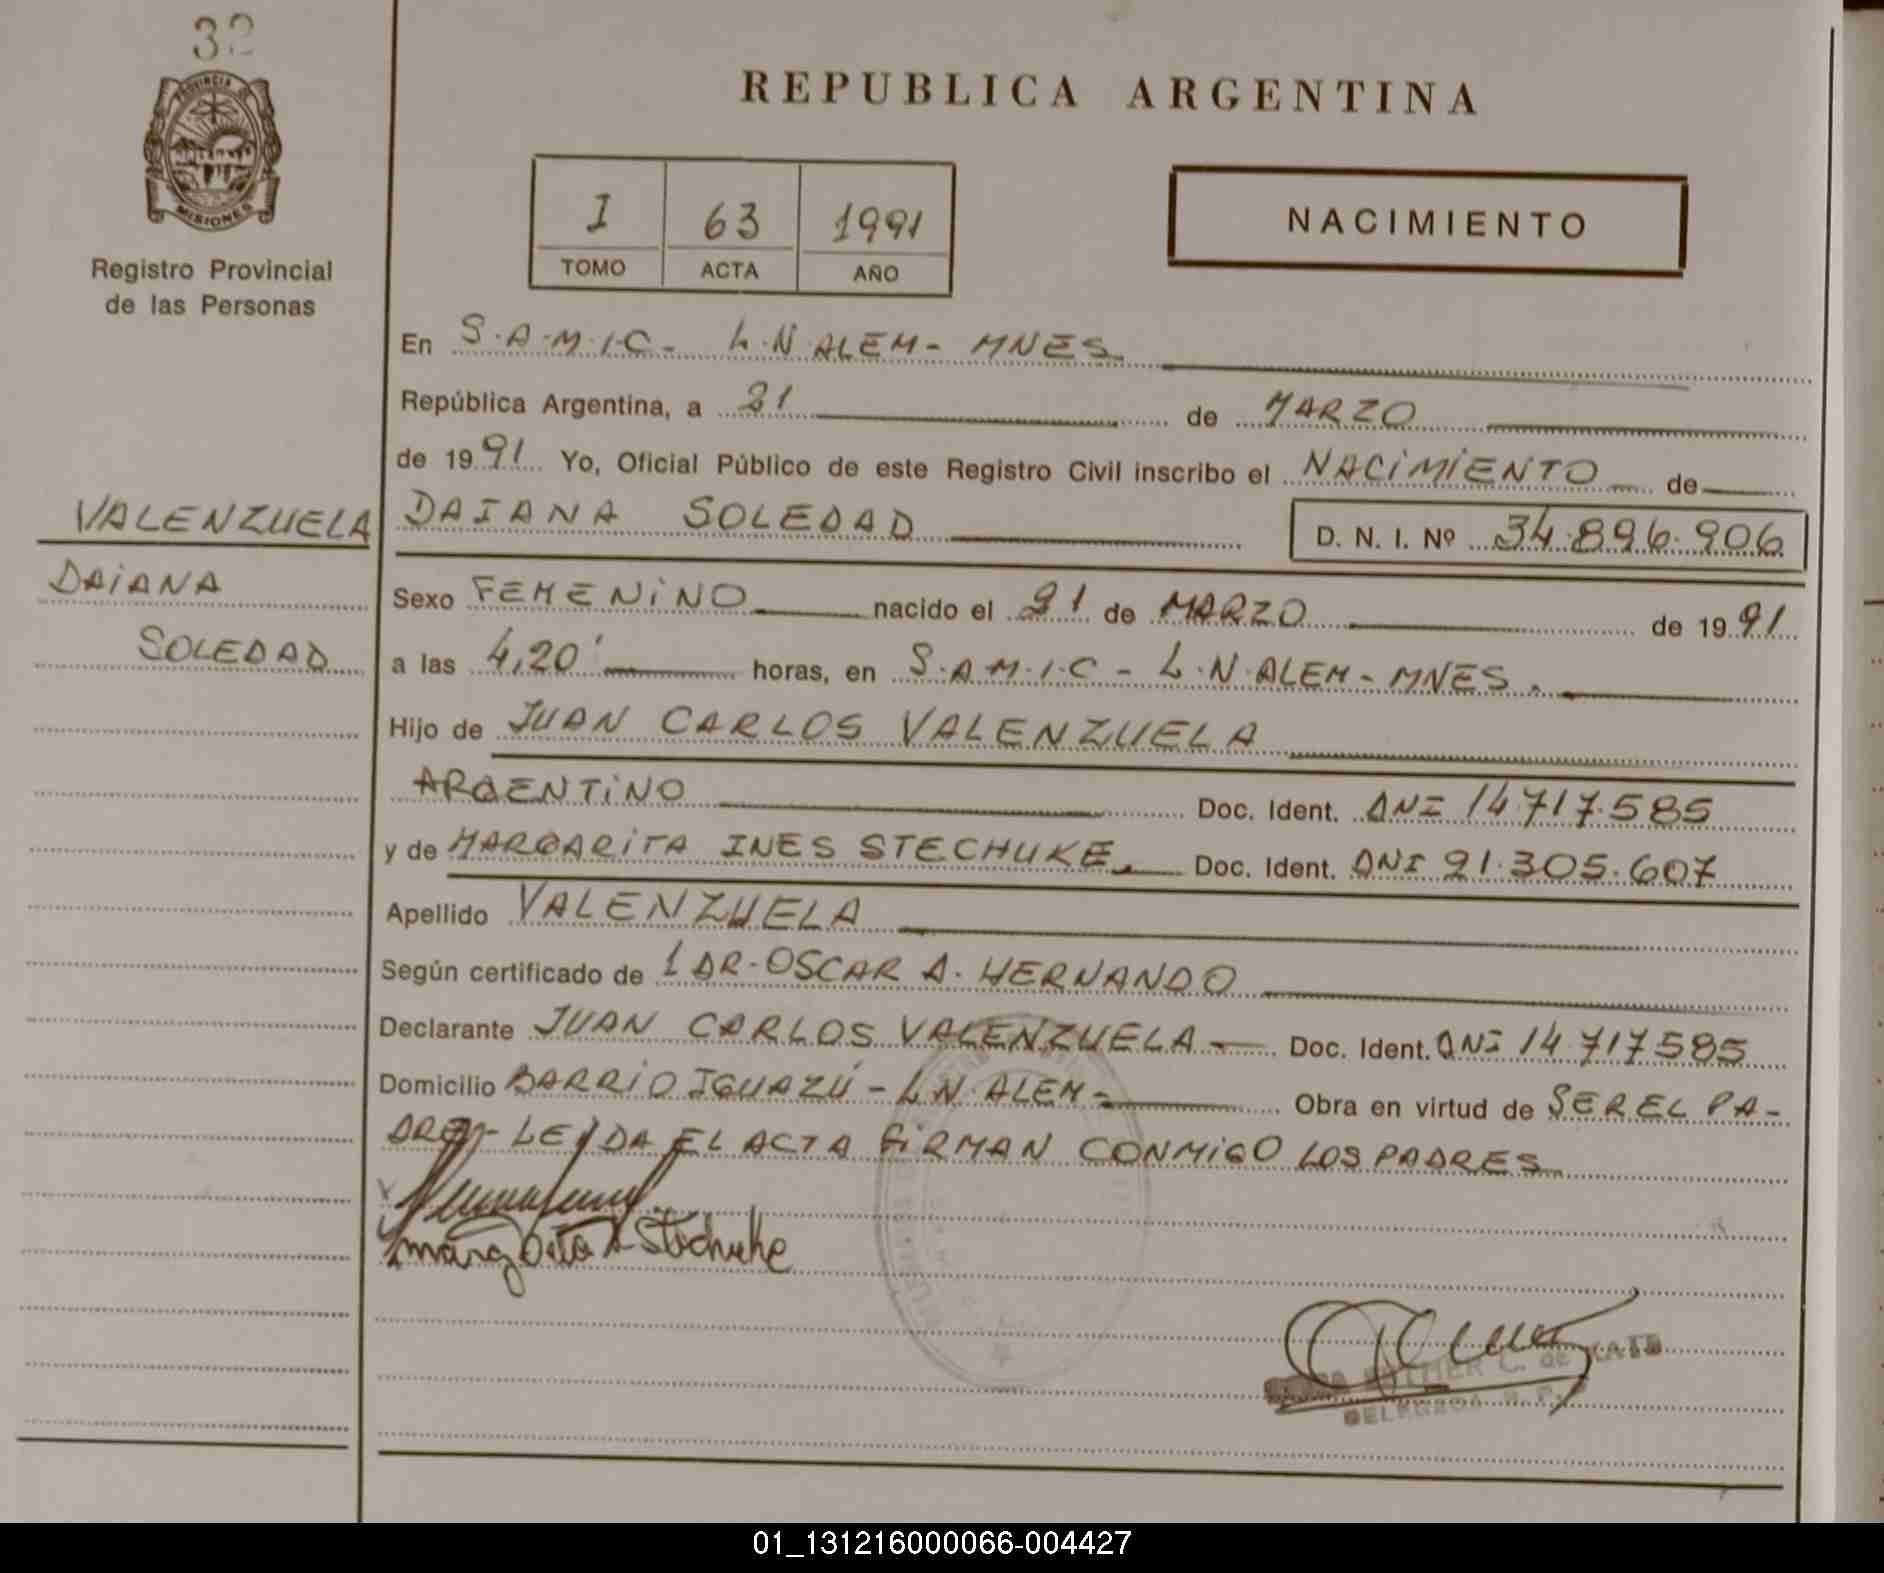 32
PROVINCIA DE
MISIONES
Registro Provincial
de las Personas
REPUBLICA ARGENTINA
I 63 1991
TOMO ACTA AÑO
NACIMIENTO
En S.A.M.I.C- L.N.ALEM- MNES.
República Argentina, a 21 de MARZO
de 1991 Yo, Oficial Público de este Registro Civil inscribo el NACIMIENTO de
VALENZUELA
DAIANA
SOLEDAD
DAIANA SOLEDAD D. N. I. Nº 34.896.906
Sexo FEMENINO nacido el 21 de MARZO de 1991
a las 4,20' horas, en S.A.M.I.C - L.N.ALEM - MNES.
Hijo de JUAN CARLOS VALENZUELA
ARGENTINO Doc. Ident. DNI 14.717.585
y de MARGARITA INES STECHUKE. Doc. Ident. DNI 21.305.607
Apellido VALENZUELA
Según certificado de 1 DR. OSCAR A. HERNANDO
Declarante JUAN CARLOS VALENZUELA - Doc. Ident. DNI 14.717585
Domicilio BARRIO IGUAZÚ - L.N.ALEM - Obra en virtud de SER EL PA-
DRE.- LEIDA EL ACTA FIRMAN CONMIGO LOS PADRES
Margarita I Stechuke
ESTHER C. de
DELEGADA R.P.
01_131216000066-004427